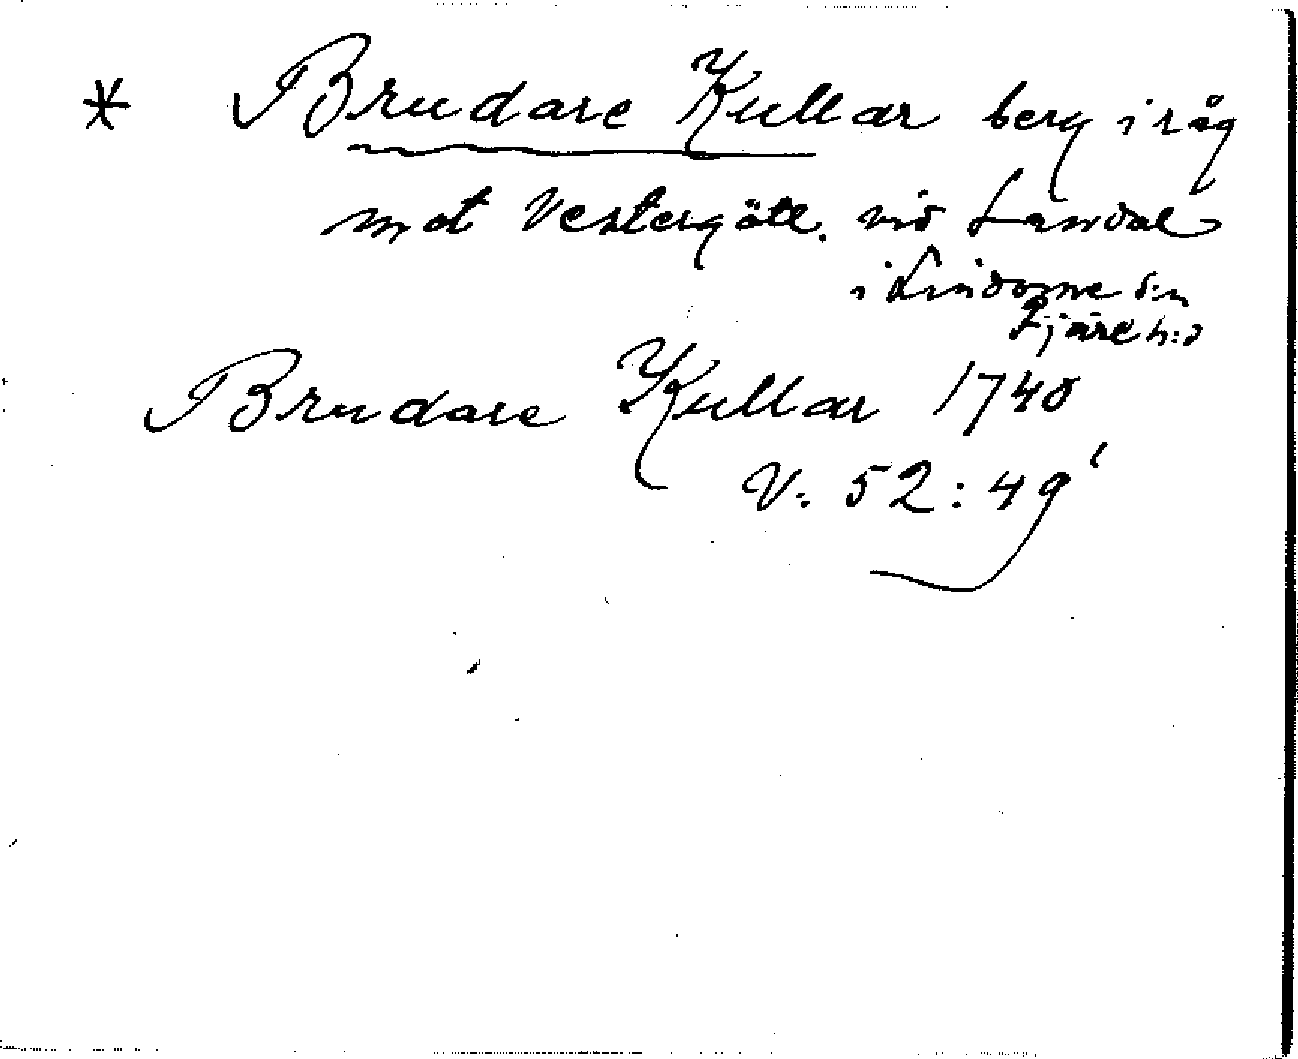 * Brudare Kullar berg i råg
mot Vestergötl. vid Lamdal
i Lindome s:n
Fjäre h:d
Brudare Kullar 1740
V. 52:49'